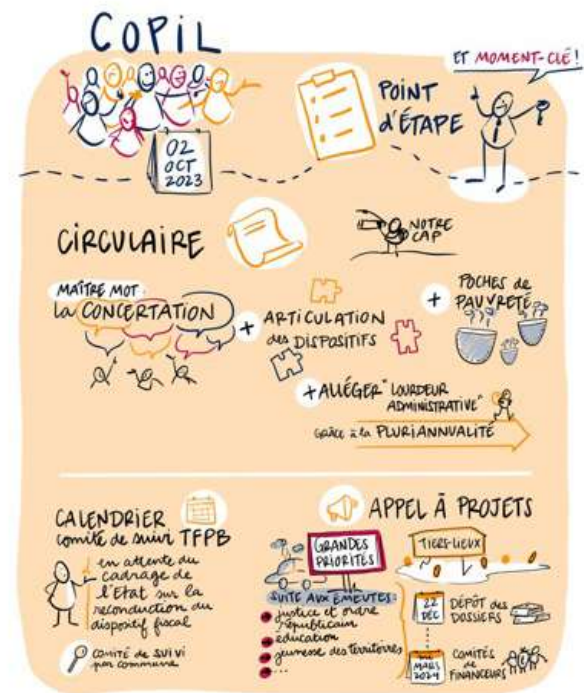 COPIL
02
OCT
2023
POINT
d'ÉTAPE
ET MOMENT-CLÉ !
CIRCULAIRE
NOTRE
CAP
MAÎTRE MOT :
la CONCERTATION
+
ARTICULATION
des DISPOSITIFS
+
POCHES de
PAUVRETÉ
+ ALLÉGER "LOURDEUR
ADMINISTRATIVE"
GRÂCE à la PLURIANNUALITÉ
CALENDRIER
comité de suivi TFPB
en attente du
cadrage de
l'Etat sur la
reconduction du
dispositif fiscal
COMITÉ de SUIVI
par commune
APPEL À PROJETS
GRANDES
PRIORITÉS
SUITE AUX ÉMEUTES :
justice et ordre
républicain
education
jeunesse des territoires
...
TIERS-LIEUX
22
DÉC
DÉPÔT des
DOSSIERS
MARS
2024
COMITÉS
de
FINANCEURS